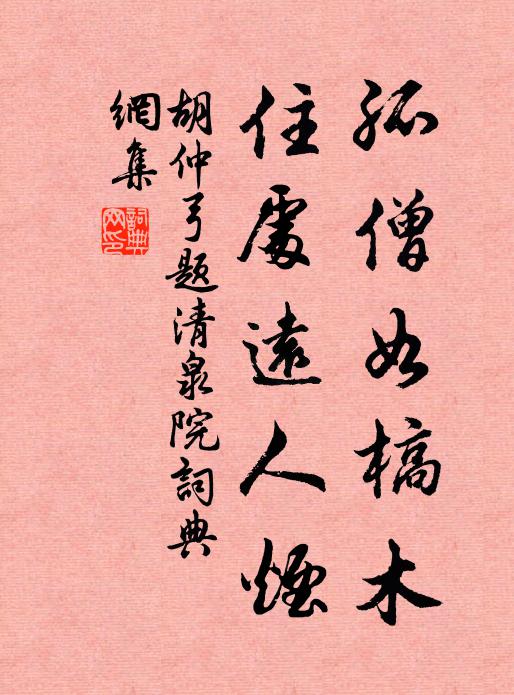 孤僧如槁木
住處遠人煙
胡仲弓題清泉院詞典
網集
詞典網印